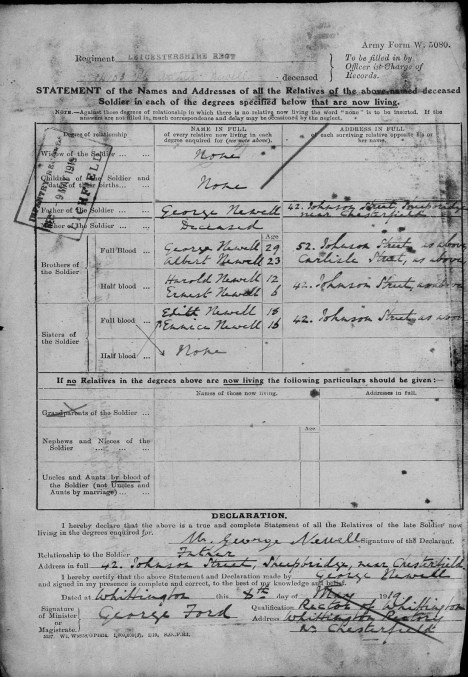 Army Form W. 5080.
Regiment LEICESTERSHIRE REGT
To be filled in by
Officer i/c Charge of
Records.
deceased
STATEMENT of the Names and Addresses of all the Relatives of the above-named deceased
Soldier in each of the degrees specified below that are now living.
NOTE.—Against those degrees of relationship in which there is no relative now living the word "none" is to be inserted. If the
answers are not filled in, much correspondence and delay may be occasioned by the neglect.
Degree of relationship
NAME IN FULL
of every relative now living in each
degree enquired for (see note above).
ADDRESS IN FULL
of each surviving relative opposite his or
her name.
Widow of the Soldier ... None
Children of the Soldier and
dates of their births... None
Father of the Soldier ... George Newell 42. Johnson Street, Sheepbridge
near Chesterfield
Mother of the Soldier ... Deceased
Age
Brothers of
the Soldier
Full Blood ... George Newell 29 52. Johnson Street, as above
Albert Newell 23 Carlisle Street, as above
Half blood ... Harold Newell 12
Ernest Newell 6 42. Johnson Street, as above
Sisters of
the Soldier
Full blood ... Edith Newell 16 42. Johnson Street, as above
Eunice Newell 16
Half blood ... None
If no Relatives in the degrees above are now living the following particulars should be given:—
Names of those now living.
Addresses in full.
Grandparents of the Soldier ...
Age
Nephews and Nieces of the
Soldier ... ... ...
Uncles and Aunts by blood of
the Soldier (not Uncles and
Aunts by marriage) ... ...
DECLARATION.
I hereby declare that the above is a true and complete Statement of all the Relatives of the late Soldier now
living in the degrees enquired for.
Mr. George Newell Signature of the Declarant.
Relationship to the Soldier Father
Address in full 42. Johnson Street, Sheepbridge, near Chesterfield
I hereby certify that the above Statement and Declaration made by George Newell
and signed in my presence is complete and correct, to the best of my knowledge and belief.
Dated at Whittington this 8th day of May 1919
Signature
of Minister
or
Magistrate.
George Ford
Qualification Rector of Whittington
Address Whittington Rectory
Nr Chesterfield